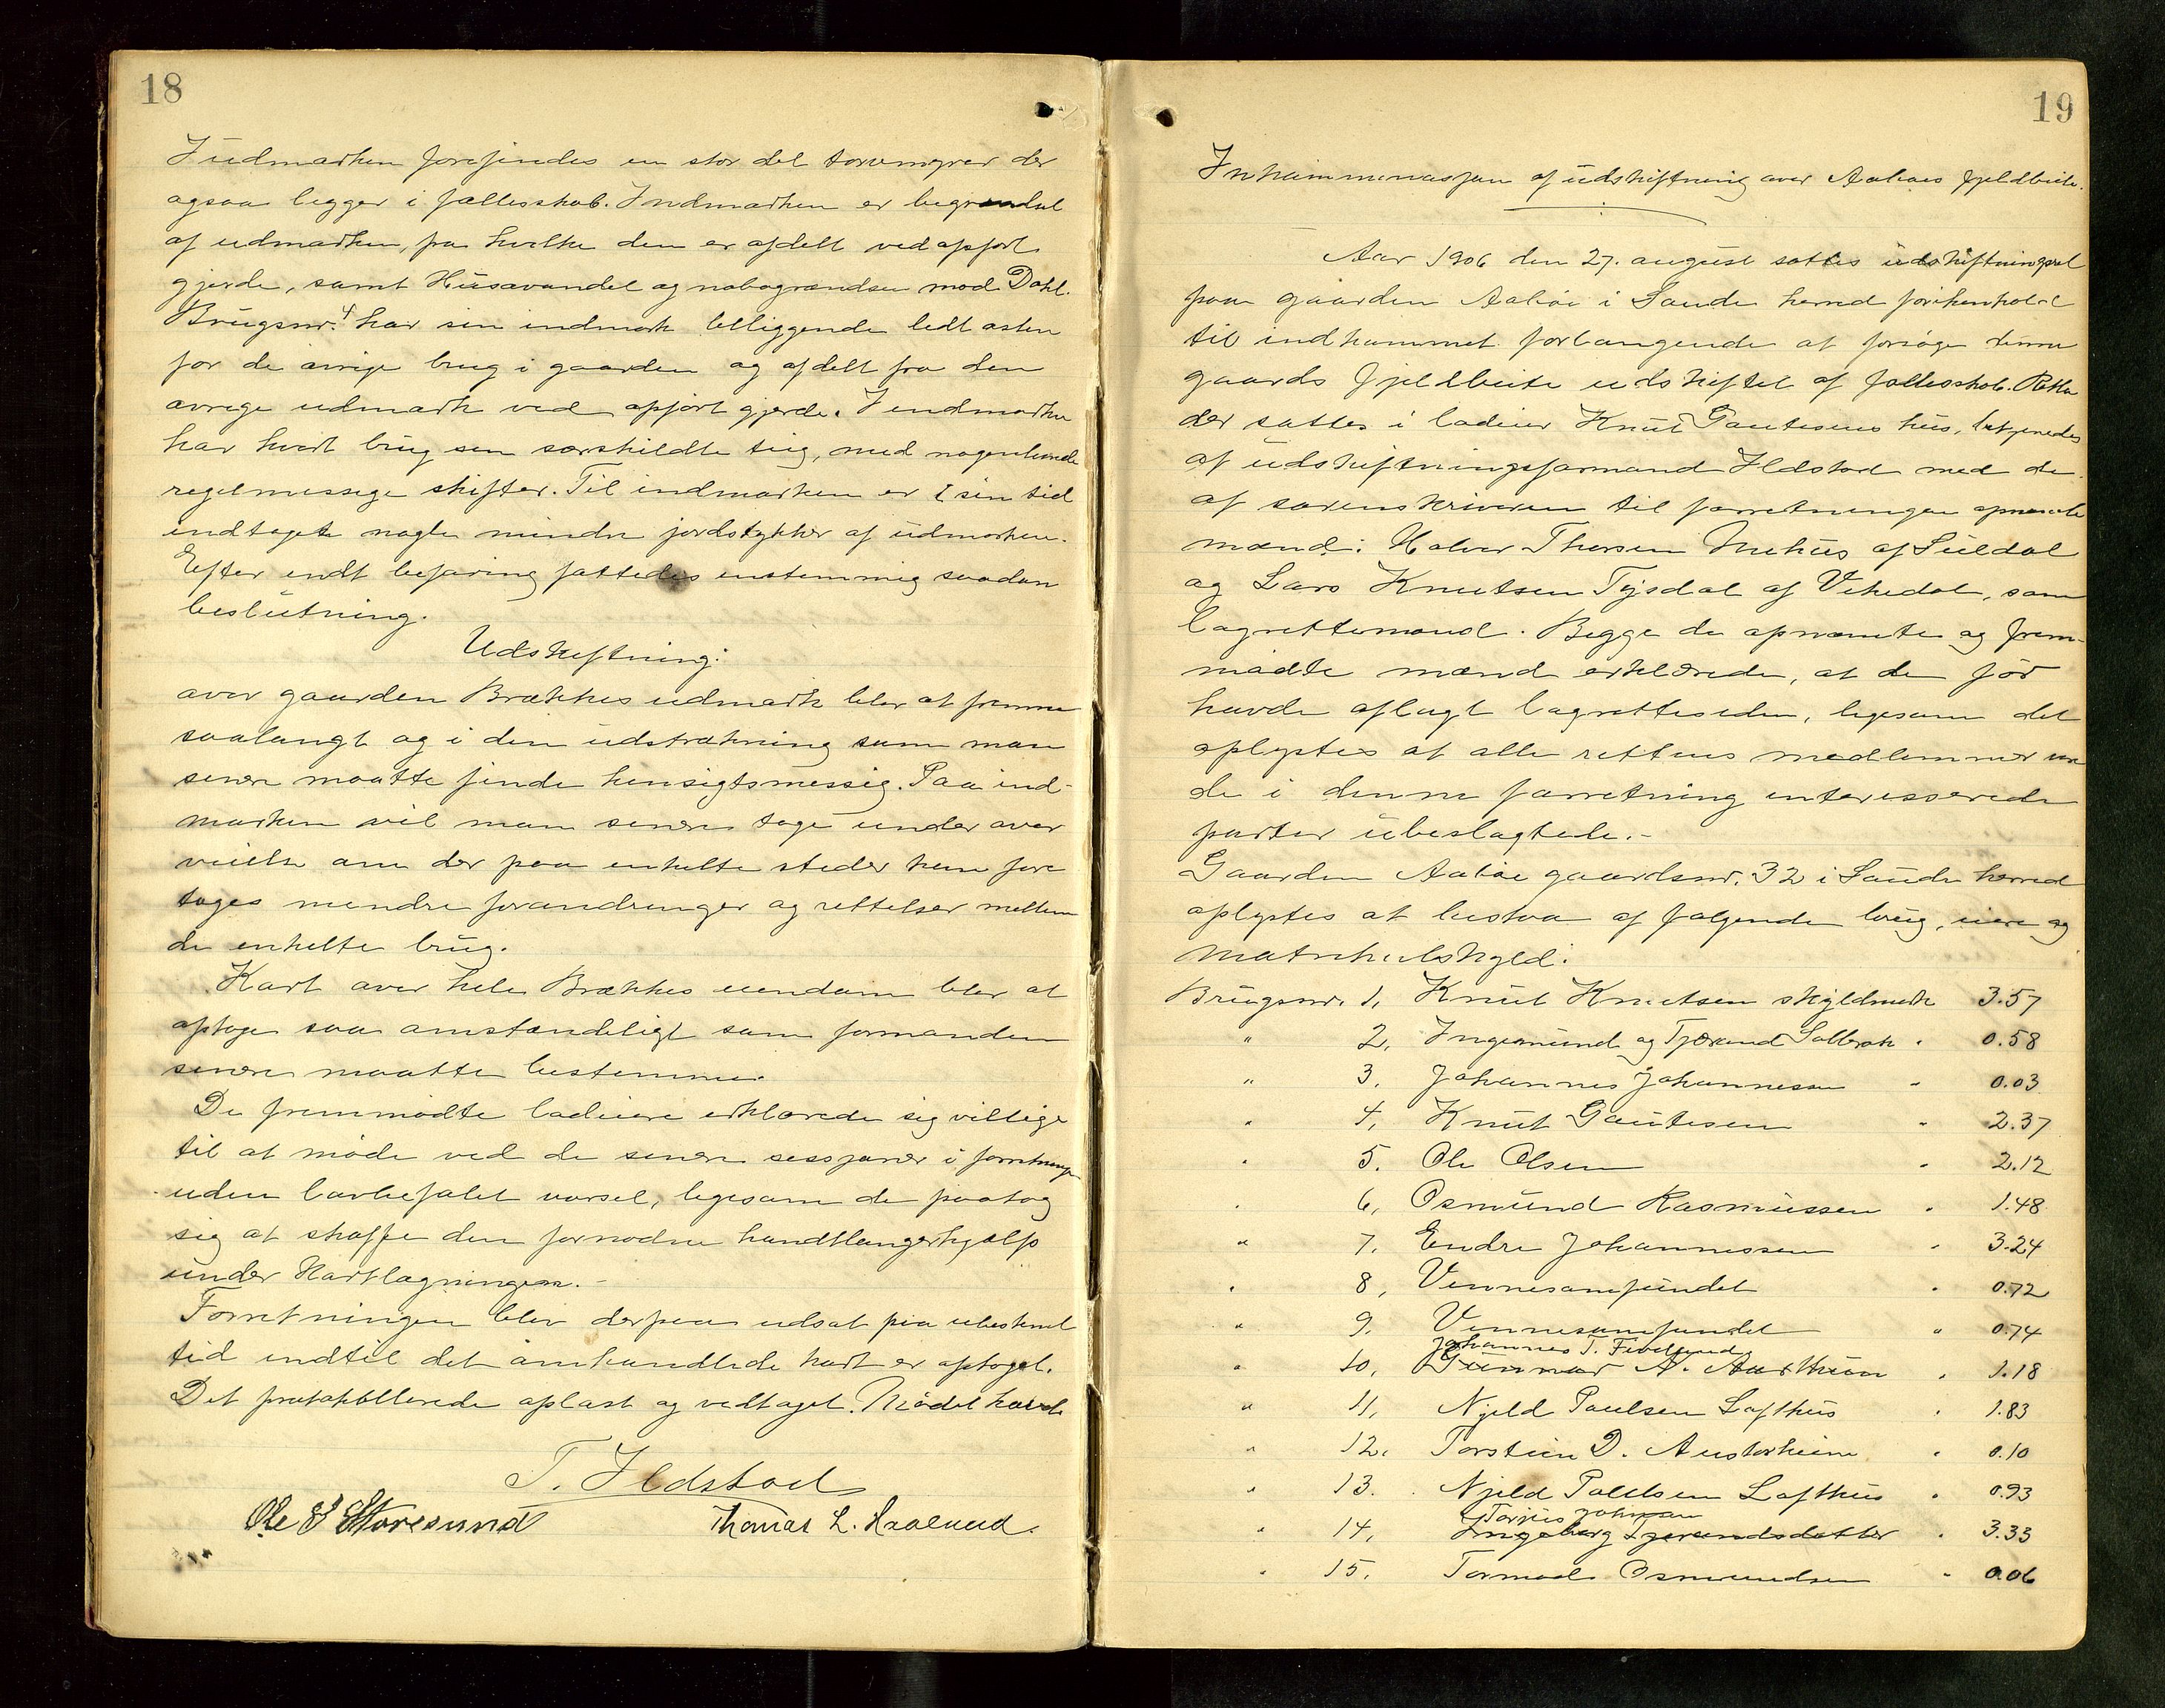 18
I udmarken forefindes en stor del torvmyrer der
ogsaa ligger i fællesskab. Indmarken er begrændset
af udmarken, fra hvilke den er afdelt ved opført
gjerde, samt Husavandet og nabogrændsen mod Dahl.
Brugsnr. 4 har sin indmark beliggende lidt østen
for de øvrige brug i gaarden og afdelt fra den
øvrige udmark ved opført gjerde. I indmarken
har hvert brug sin særskildte teig, med nogenlunde
regelmessige skifter. Til indmarken er i sin tid
indtaget nogle mindre jordstykker af udmarken.
Efter endt befaring fattedes enstemmig saadan
beslutning.
Udskiftning:
over gaarden Brækkes udmark blev at fremme
saalangt og i den udstrækning som man
senere maatte finde hensigtsmessig. Paa ind-
marken vil man senere tage under over
veielse om der paa enkelte steder kan fore
tages mindre forandringer og rettelser mellem
de enkelte brug.
Kart over hele Brækkes eiendom blev at
optage saa omstændeligt som formanden
senere maatte bestemme.
De fremmødte lodeiere erklærede sig villige
til at møde ved de senere sessjoner i forretningen
uden lovbefalet varsel, ligesom de paatog
sig at skaffe den fornødne handtlangerhjælp
under Kartlægningen.-
Forretningen blev derpaa udsat paa ubestemt
tid indtil det omhandlede kart er optaget.
Det protokollerede oplæst og vedtaget. Mødet hævet
T. Ildstad
Ole S Storesund Thomas L. Haaland.
19
Inkaminasjon af udskiftning over Aabøes fjeldbeite.
Aar 1906 den 27. august sattes udskiftningsret
paa gaarden Aabøe i Sande herred i henhold
til indkommet forlangende at forsøge denne
gaards fjeldbeite udskiftet af fællesskab. Retten
der sattes i lodeier Knut Gautesens hus, betjenedes
af udskiftningsformand Ildstad med de
af sorenskriveren til forretningen opnævnte
mænd: Halvor Thorsen Mehus af Suldal
og Lars Knutsen Tysdal af Vikedal, som
lagrettemænd. Begge de opnævnte og frem-
mødte mænd erklærede, at de før
havde aflagt lagretteseden, ligesom det
oplystes at alle rettens medlemmer var
de i denne forretning interesserede
parter ubeslægtede.-
Gaarden Aabøe gaardsnr. 32 i Sande herred
oplystes at bestaa af følgende brug, eiere og
Matrikulskyld:
Brugsnr. 1, Knut Knutsen skyldmark 3.57
" 2, Ingemund og Tjerand Solbræk " 0.58
" 3. Johannes Johannesen " 0.03
" 4, Knut Gautesen " 2.37
" 5. Ole Olsen " 2.12
" 6, Osmund Rasmussen " 1.48
" 7. Endre Johannessen " 3.24
" 8, Vennesamfundet " 0.72
" 9. Vennesamfundet " 0.74
Johannes T. Fivelland
" 10, Gunnar A. " 1.18
" 11, Njeld Poulsen Lofthus " 1.83
" 12. Torstein D. Austarheim " 0.10
" 13. Njeld Poulsen Lofthus " 0.93
Torjus Johnsen
" 14, Ingeborg Tjerandsdatter " 3.33
" 15. Tormod Osmundsen " 0.06